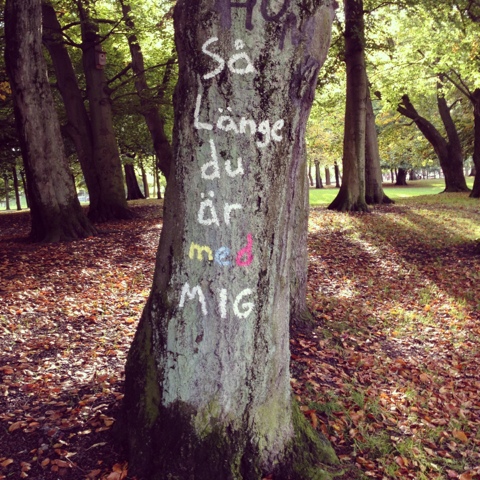 Så
Länge
du
är
med
MIG